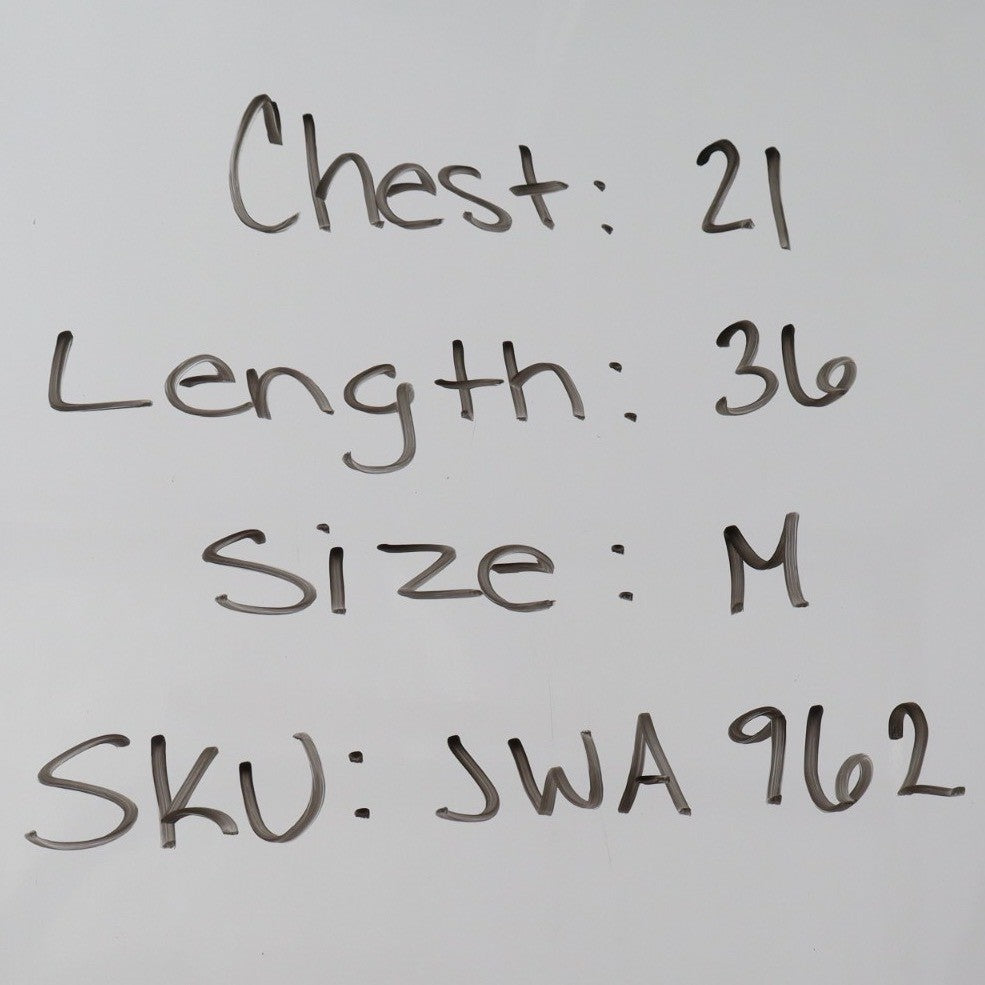 Chest: 21
Length: 36
Size: M
SKU: JWA 962